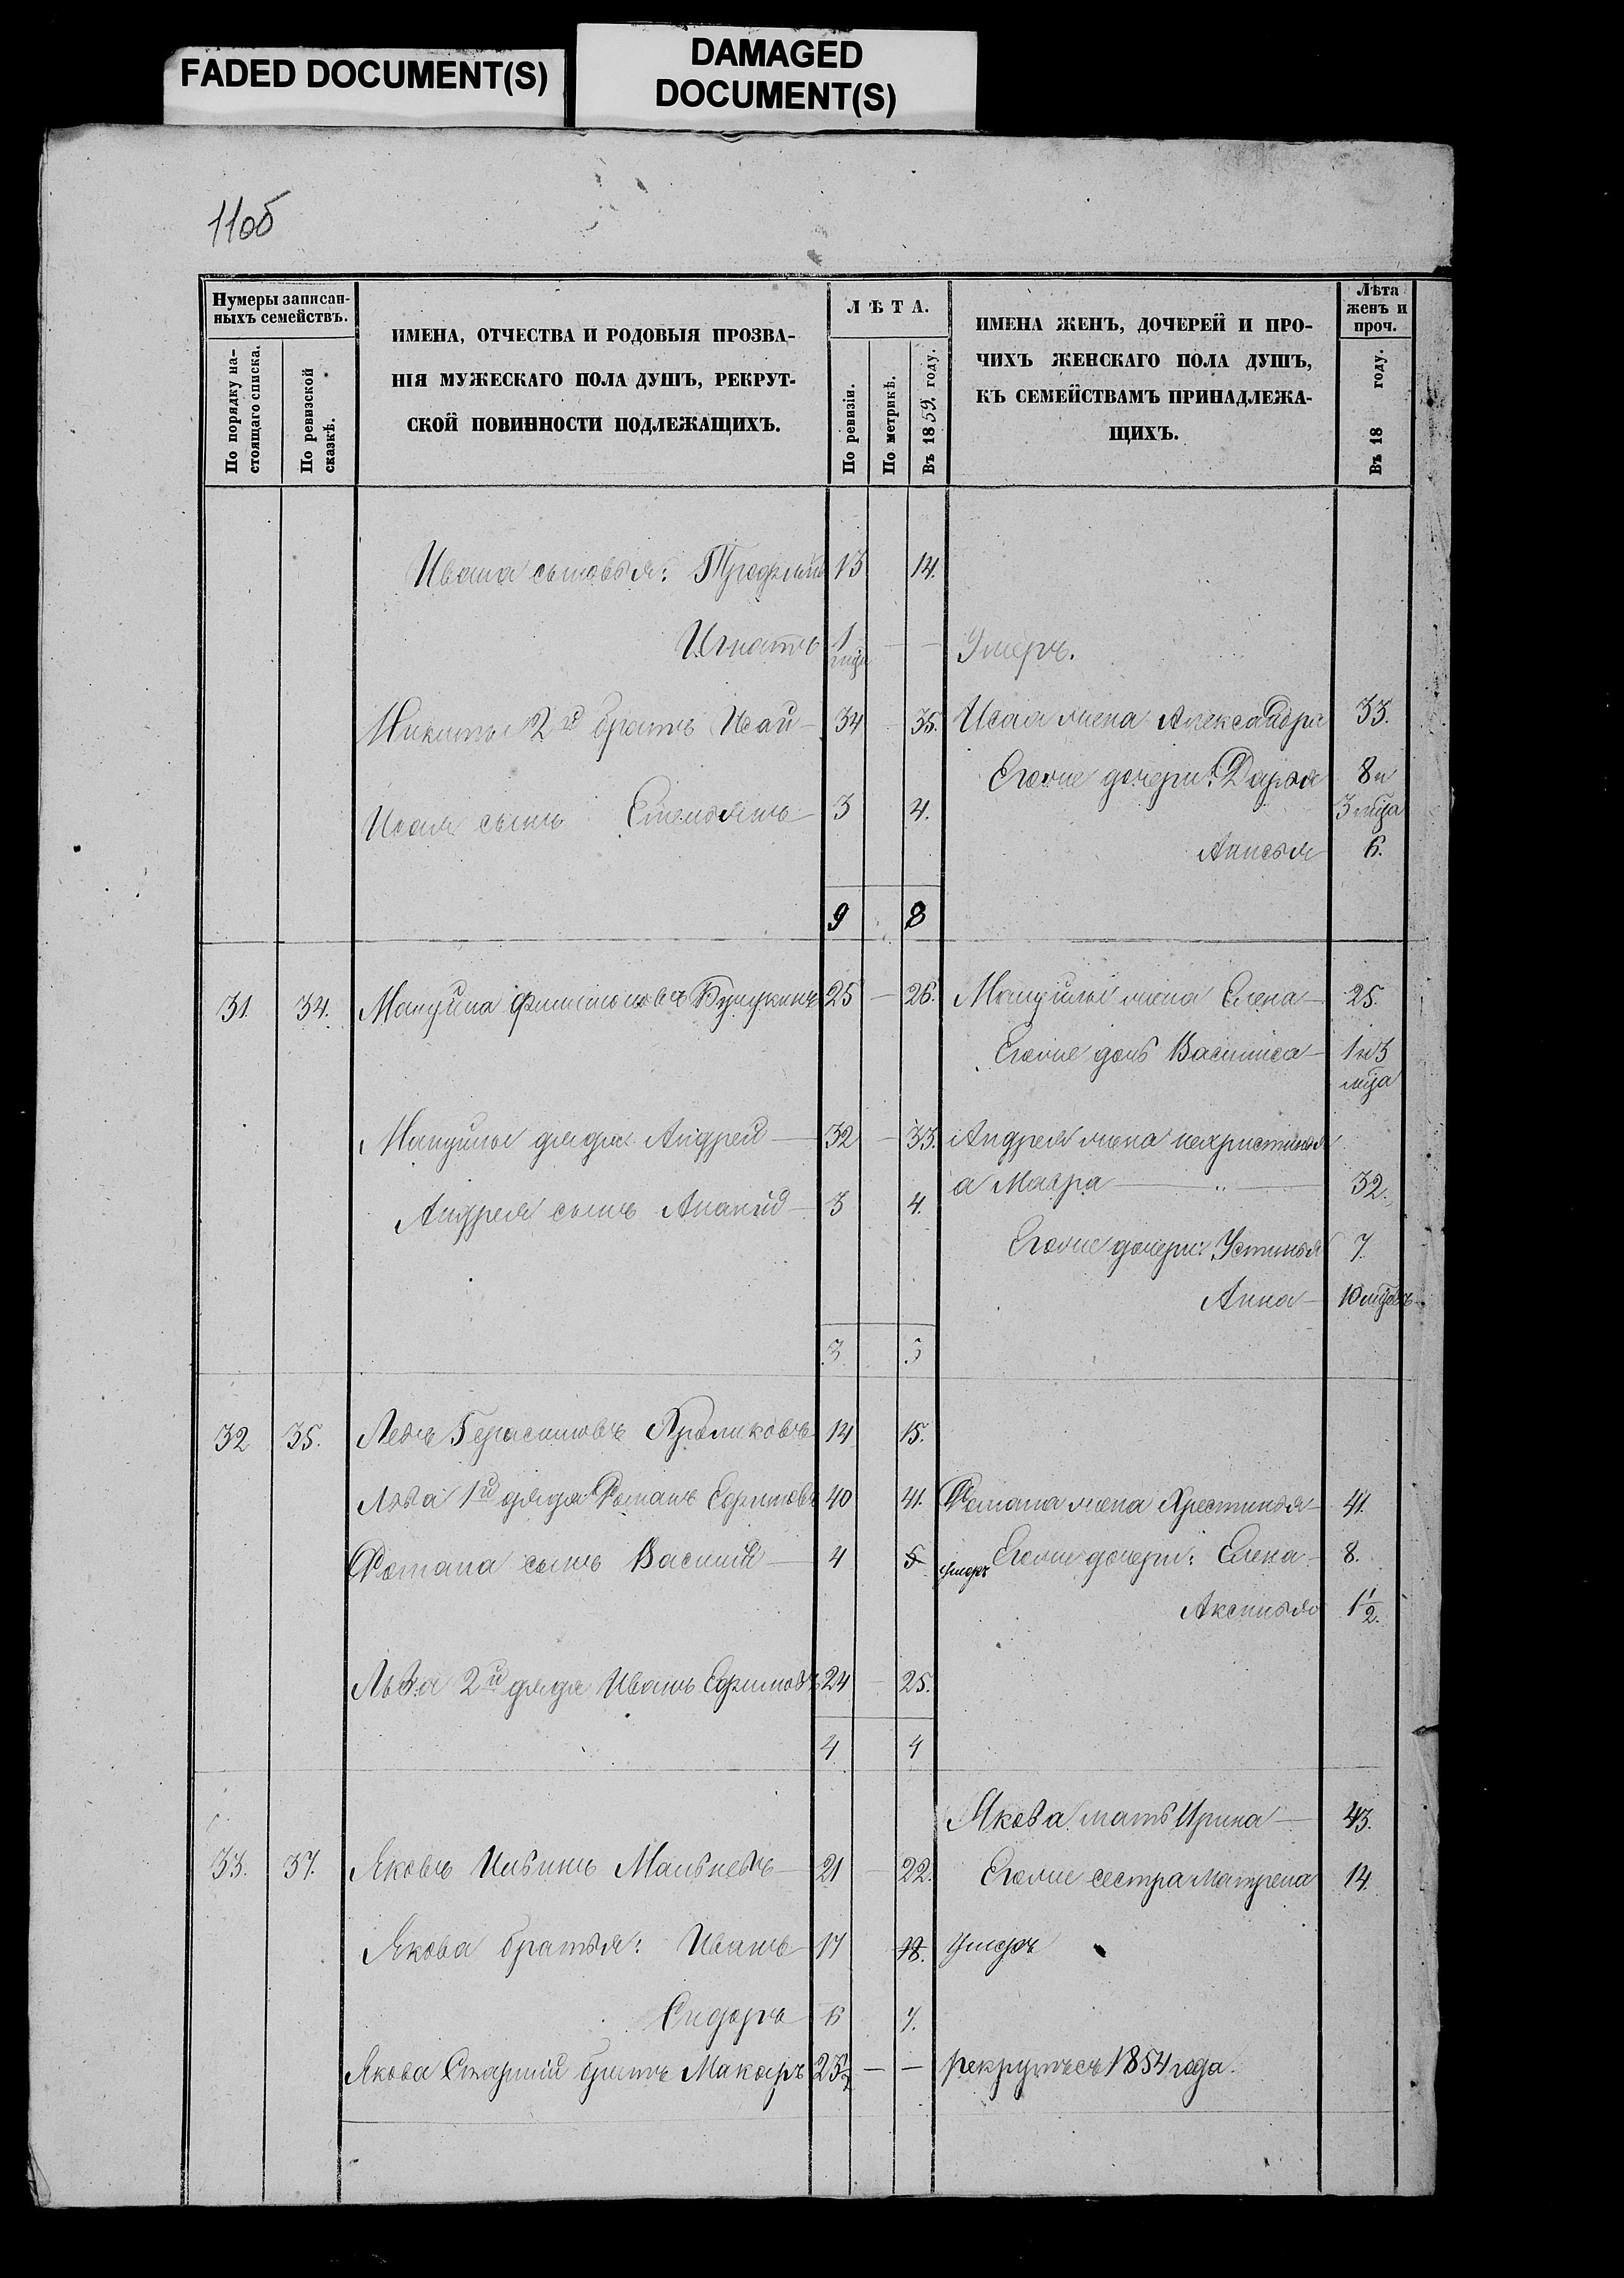 FADED DOCUMENT(S)
DAMAGED
DOCUMENT(S)
11об
Нумеры записан-
ныхъ семействъ.
По порядку на-
стоящаго списка.
По ревизской
сказкѣ.
ИМЕНА, ОТЧЕСТВА И РОДОВЫЯ ПРОЗВА-
НІЯ МУЖЕСКАГО ПОЛА ДУШЪ, РЕКРУТ-
СКОЙ ПОВИННОСТИ ПОДЛЕЖАЩИХЪ.
ЛѢТА.
По ревизіи.
По метрикѣ.
Въ 1859. году.
ИМЕНА ЖЕНЪ, ДОЧЕРЕЙ И ПРО-
ЧИХЪ ЖЕНСКАГО ПОЛА ДУШЪ,
КЪ СЕМЕЙСТВАМЪ ПРИНАДЛЕЖА-
ЩИХЪ.
Лѣта
женъ и
проч.
Въ 18 году.
Ивана сыновья: Трофимъ 13 14.
Игнатъ 1 — — Умеръ.
мѣс
Никиты 2й братъ Исай — 34 — 35. Исая жена Александра 33.
Егоже дочери: Дарья 8 и
Исая сынъ 3 4. 3 мѣца
Анисья 6.
9 8
31. 34. Мануила 25 — 26. Мануилы жена Елена — 25.
Егоже дочь Василиса — 1 и 3
мѣца
Мануилы дядя Андрей — 32 — 33. Андрея жена
а Мавра — " — 32.
Андрея сынъ Ананій — 3 4.
Егоже дочери: Устинья 7.
Анна — 10 мѣцовъ
3 3
32 35. Левъ Герасимовъ 14 15.
Льва 1й дядя Романъ Ефимовъ 40 41. Романа жена Хрестинья — 41.
Романа сынъ Василій — 4 5 умеръ Егоже дочери: Елена — 8.
Аксинья 1 1/2.
Льва 2й дядя Иванъ Ефимовъ 24 — 25.
4 4
Якова мать Ирина — 43.
33. 37. Яковъ Ильинъ 21 — 22. Егоже сестра Матрена 14.
Якова братья: Иванъ 17 18. Умеръ
Сидоръ 6 7.
Якова Старшій братъ Макаръ — — рекрутъ съ 1854 года.